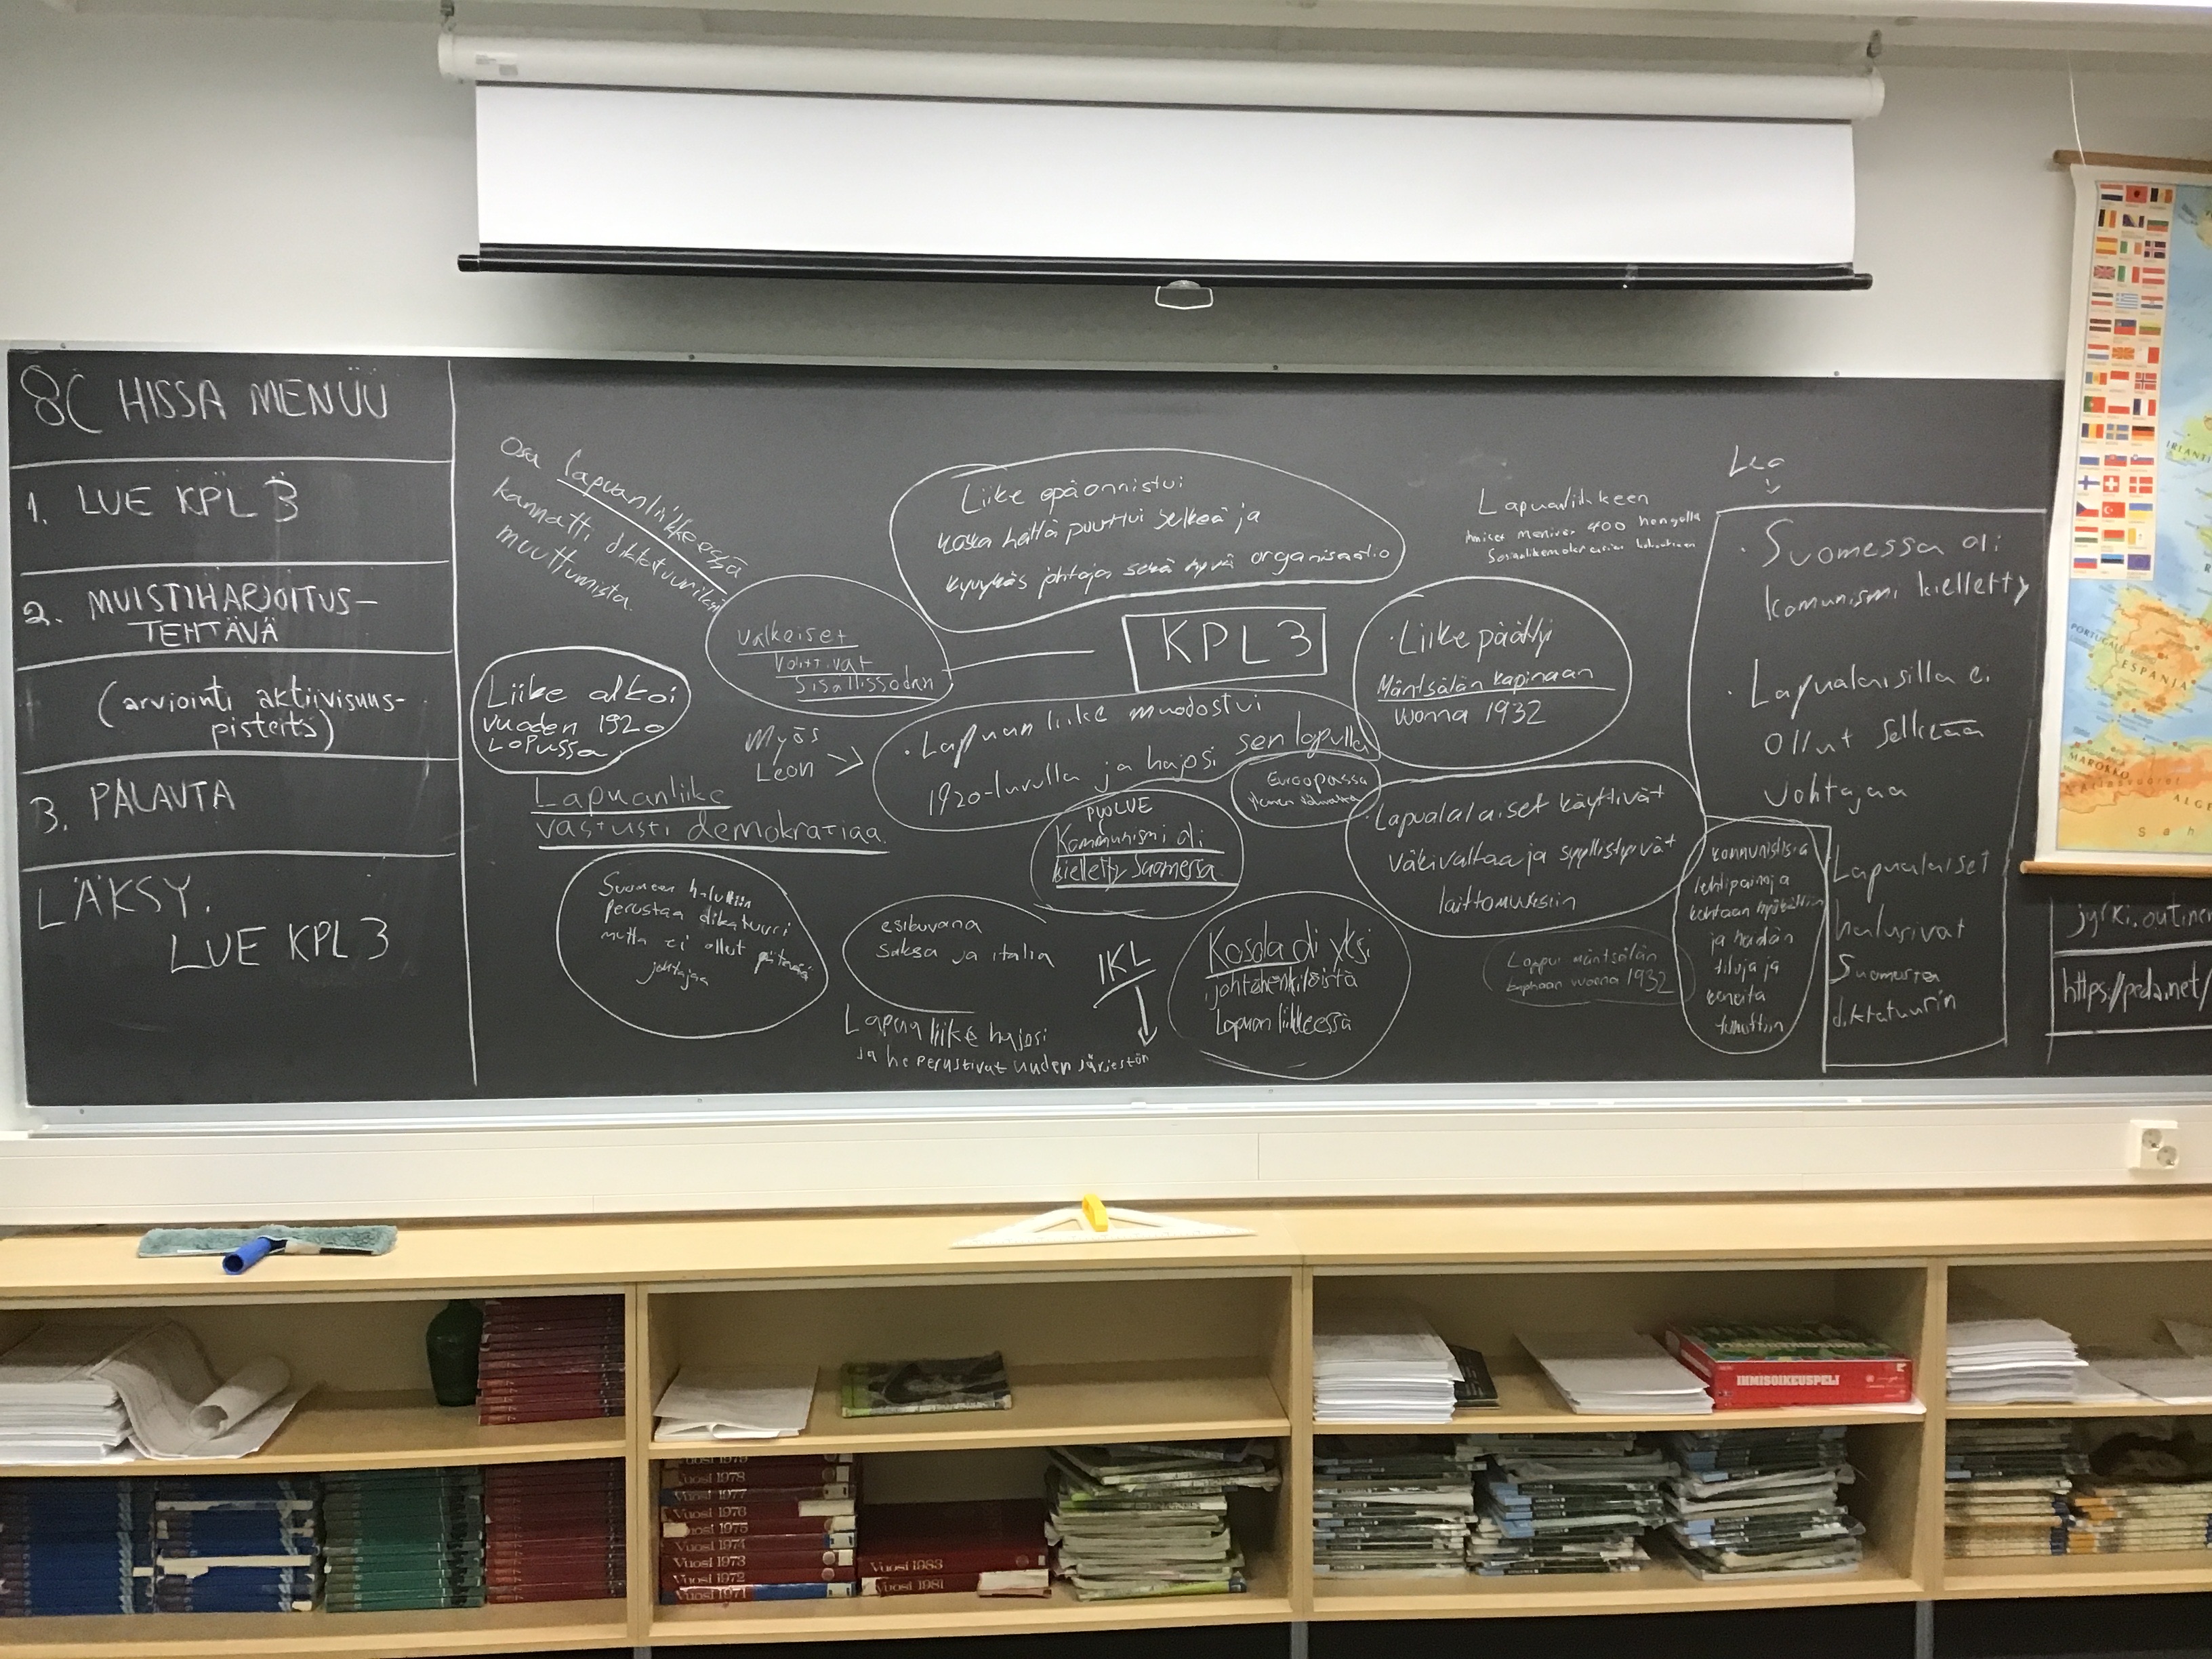 8C HISSA MENÜÜ
1. LUE KPL 3
2. MUISTIHARJOITUS-
TEHTÄVÄ
(arviointi aktiivisuus-
pisteitä)
3. PALAUTA
LÄKSY.
LUE KPL 3
Osa lapuanliikkeessä
kannatti
muuttumista.
valkeiset
voittivat
Sisällissodan
Liike alkoi
vuoden 1920
Lopussa.
Lapuanliike
vastusti demokratiaa.
Suomeen haluttiin
perustaa
mutta ei ollut
johtajaa
Liike epäonnistui
koska heiltä puuttui selkeä ja
kyvykäs johtaja sekä hyvä organisaatio
KPL 3
Myös
Leon
· Lapuan liike muodostui
1920-luvulla ja hajosi sen lopulla
PUOLUE
Kommunismi oli
kielletty Suomessa.
Euroopassa
esikuvana
Saksa ja italia
Lapua liike hajosi
ja he perustivat uuden järjestön
IKL
Kosola oli yksi
johtohenkilöistä
Lapuan liikkeessä
Lapuanliikkeen
400
· Liike päättyi
Mäntsälän kapinaan
vuonna 1932
Lapualalaiset käyttivät
väkivaltaa ja syyllistyivät
laittomuuksiin
Loppui mäntsälän
vuonna 1932
kommunistisia
lehtipainoja
kohtaan hyökättiin
ja heidän
tiloja ja
koneita
tuhottiin
Leo
· Suomessa oli
komunismi kielletty
· Lapualaisilla ei
ollut selkeää
johtajaa
Lapualaiset
halusivat
Suomesta
diktatuurin
https://peda.net/
IRLANTI
PORTUGALI
ESPANJA
MAROKKO
ALGE
Sah
IHMISOIKEUSPELI
Vuosi 1979
Vuosi 1978
Vuosi 1977
Vuosi 1976
Vuosi 1975
Vuosi 1974
Vuosi 1973
Vuosi 1972
Vuosi 1971
Vuosi 1983
Vuosi 1981